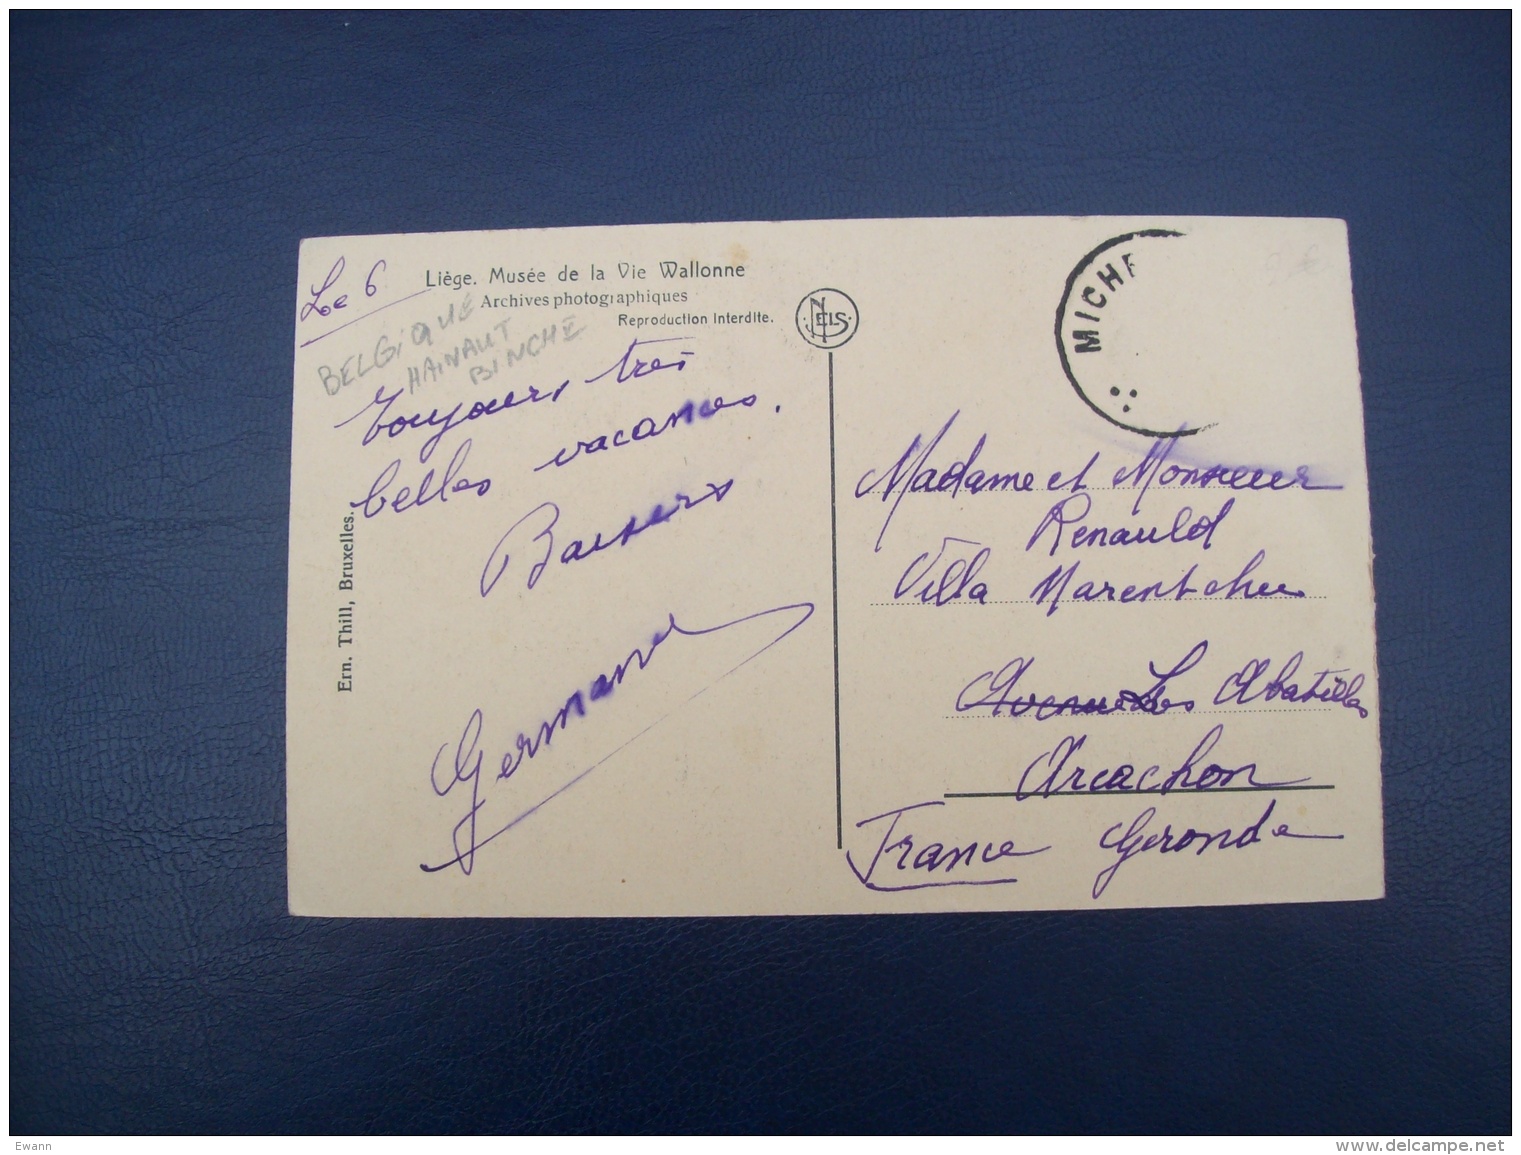 Le 6
Liège. Musée de la Vie Wallonne
Archives photographiques
Reproduction Interdite.
NELS
BELGIQUE
HAINAUT
BINCHE
Toujours tres
belles vacances.
Baisers
Germaine
Ern. Thill, Bruxelles.
MICHE
Madame et Monsieur
Renauld
Villa Marentchu
Avenue Les Abatilles
Arcachon
France Gironde
Ewann
www.delcampe.net